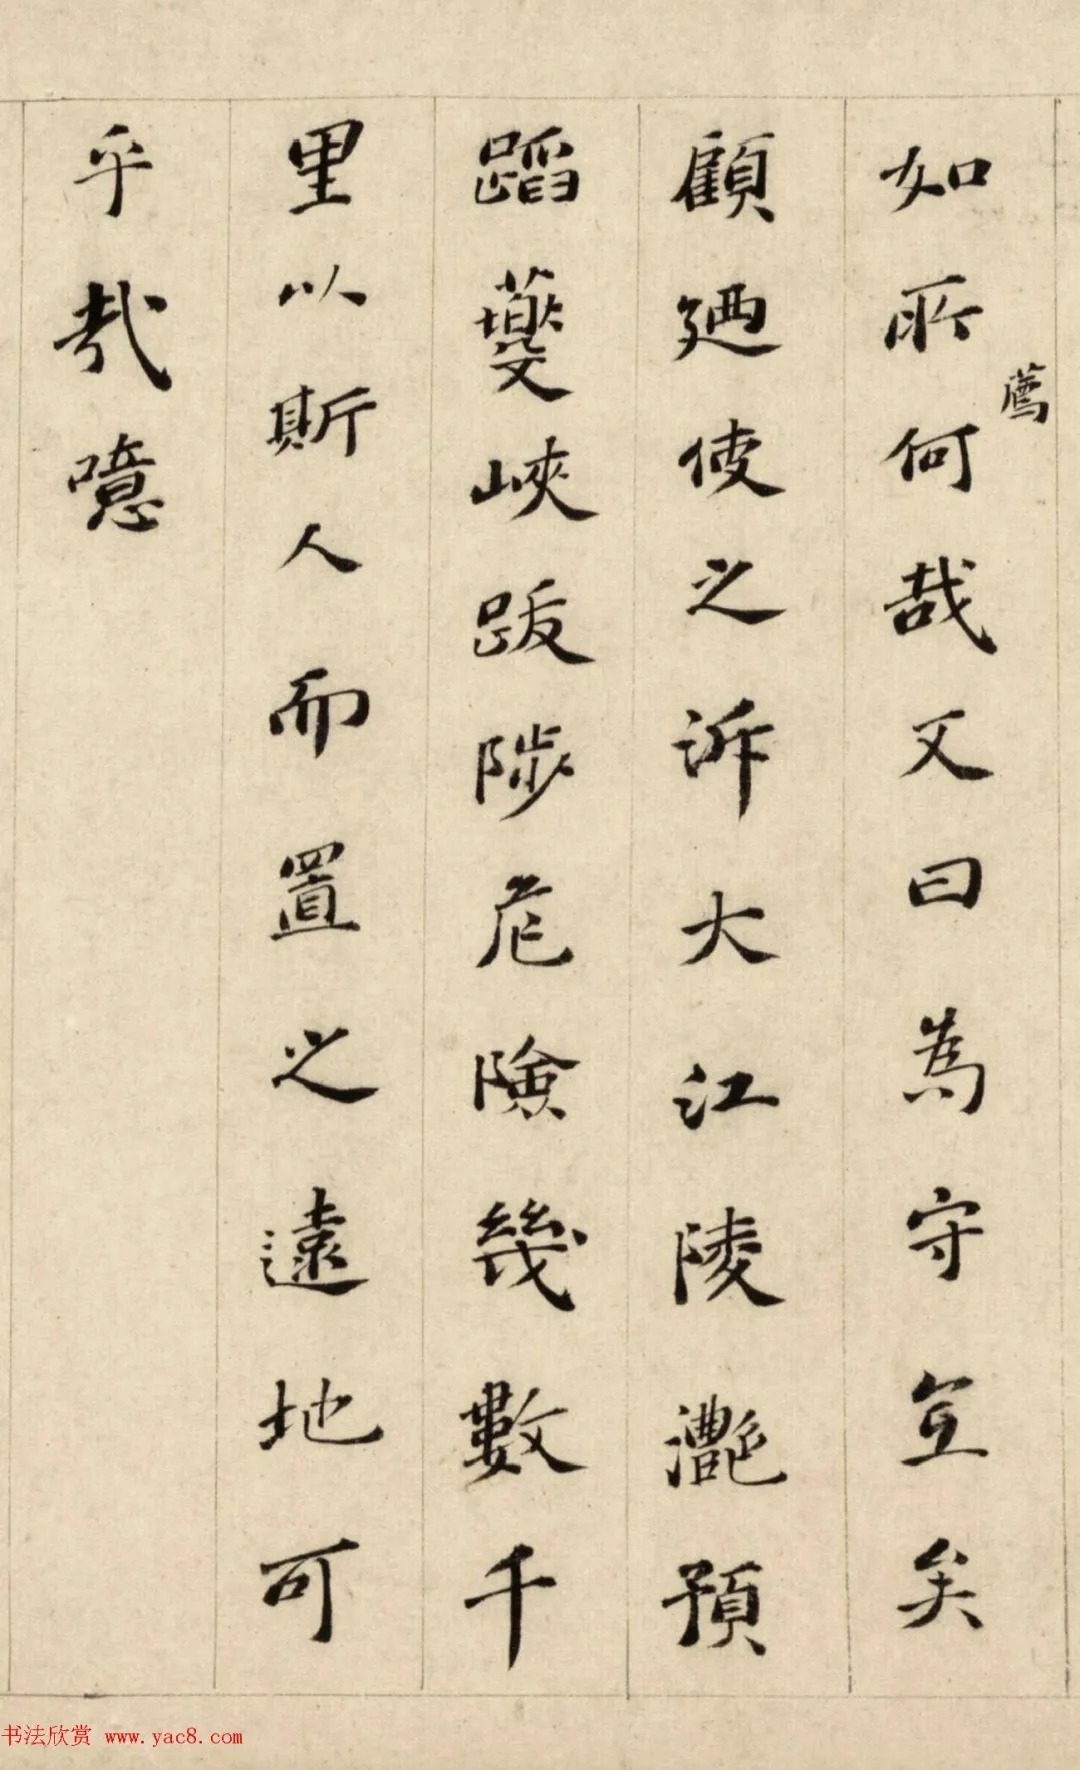 如所薦何哉又曰為守宜矣
顧廼使之泝大江陵灩預
蹈夔峽跋陟危險幾數千
里以斯人而置之遠地可
乎哉噫
书法欣赏 www.yac8.com